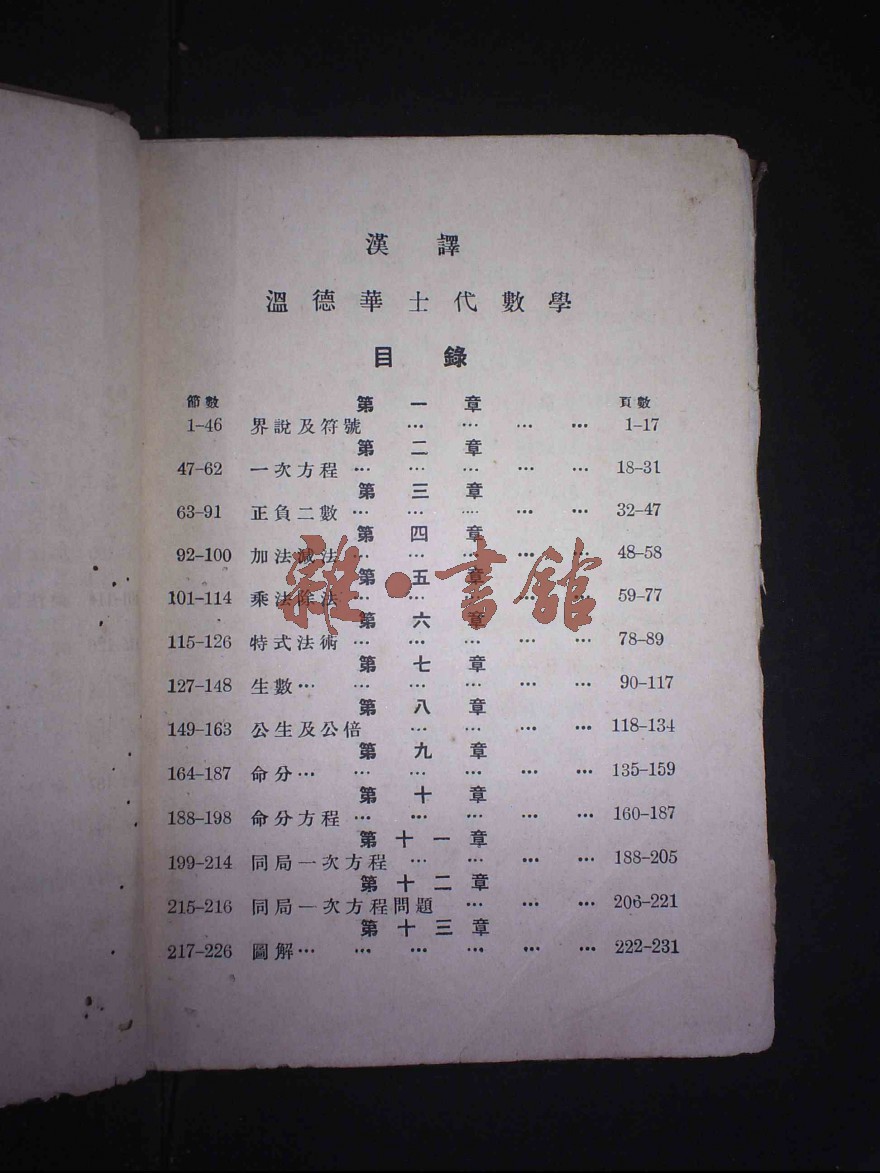 漢譯
溫德華士代數學
目錄
節數 第一章 頁數
1-46 界說及符號 … … … … 1-17
第二章
47-62 一次方程 … … … … … 18-31
第三章
63-91 正負二數 … … … … … 32-47
第四章
92-100 加法減法 … … … … … 48-58
第五章
101-114 乘法除法 … … … … … 59-77
第六章
115-126 特式法術 … … … … … 78-89
第七章
127-148 生數 … … … … … … 90-117
第八章
149-163 公生及公倍 … … … … 118-134
第九章
164-187 命分 … … … … … … 135-159
第十章
188-198 命分方程 … … … … … 160-187
第十一章
199-214 同局一次方程 … … … … 188-205
第十二章
215-216 同局一次方程問題 … … … 206-221
第十三章
217-226 圖解 … … … … … … 222-231
雜·書館